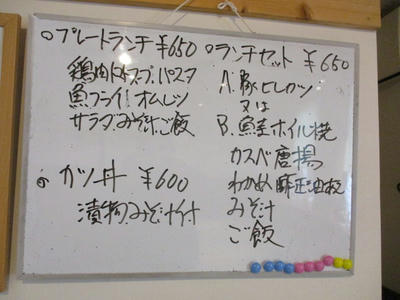 ○プレートランチ ¥650
鶏肉トマトスープ パスタ
魚フライ オムレツ
サラダ みそ汁 ご飯
○カツ丼 ¥600
漬物 みそ汁付
○ランチセット ¥650
A. 豚ヒレカツ
又は
B. 鮭ホイル焼
カスベ唐揚
わかめ
みそ汁
ご飯